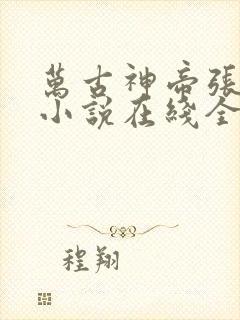 萬古神帝張
小說在綫全
程翔